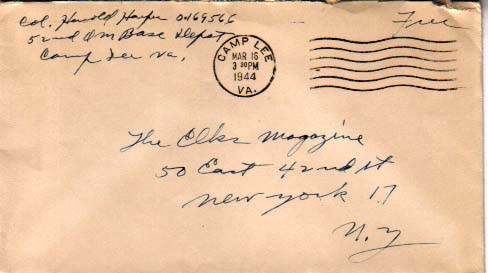 Col. Harold Harper O-169566
52nd QM Base Depot
Camp Lee Va.
Free
CAMP LEE
MAR 16
3 30 PM
1944
VA.
The Elks Magazine
50 East 42nd St
New York 17
N.Y